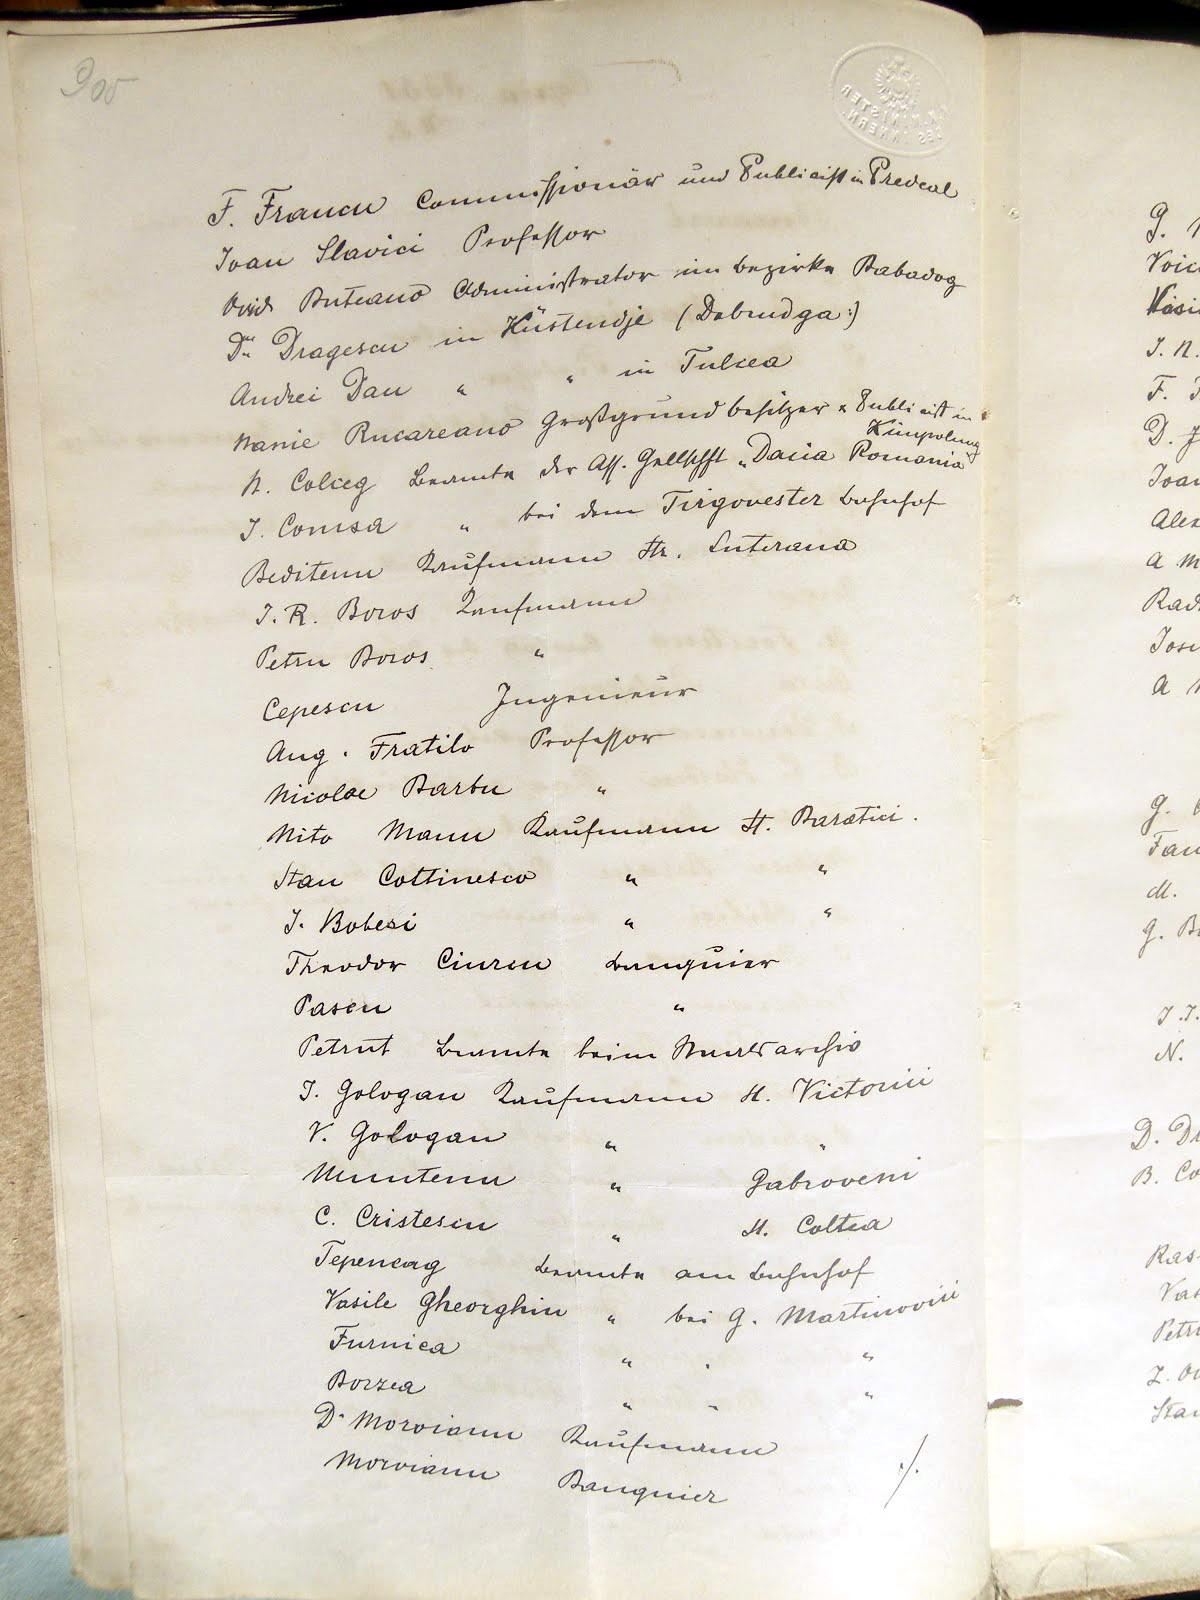 900
F. Francu Commissionär und Publicist in Predeal
Ioan Slavici Professor
Ovid Buteano Administrator im Bezirke Babadog
Dr. Dragescu in Küstendje (Dobrudga:)
Andrei Dan " " in Tulcea
Nanie Rucareano Großgrundbesitzer & Publicist in Kimpolung
N. Colceg Beamte der Ass. Gesellschft „Dacia Romania
I. Comsa " bei dem Tirgovester Bahnhof
Beditenu Kaufmann Str. Luterana
I. R. Boros Kaufmann
Petru Boros "
Cepescu Ingenieur
Aug. Fratilo Professor
Nicolae Barbu "
Nito Mann Kaufmann St. Baratici.
Stan Cottinesco " "
I. Bobesi " "
Theodor Ciurcu Banquier
Pascu "
Petrut Beamte beim Staatsarchiv
I. Gologan Kaufmann St. Victoriii
V. Gologan " "
Muntenu " Gabroveni
C. Cristescu " St. Coltea
Tepeneag Beamte am Bahnhof
Vasile Gheorghiu " bei G. Martinoviii
Furnica " " "
Borzea " " "
D. Moroianu Kaufmann
Moroianu Banquier
./.
G.
I. N.
F.
D.
A
A
G.
M.
G.
I. I.
N.
D.
B.